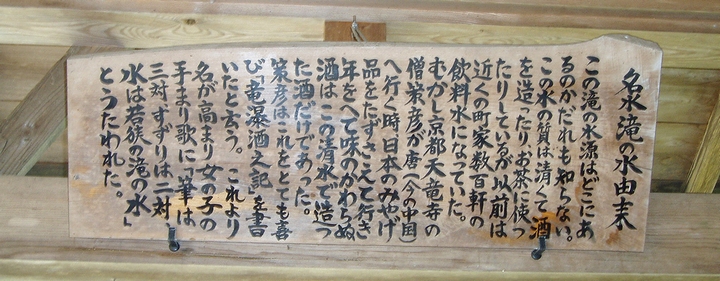 名水滝の水由来
この滝の水源はどこにあ
るのかだれも知らない。
この水の質は清くて酒
を造ったりお茶に使っ
たりしているが以前は
近くの町家数百軒の
飲料水になっていた。
むかし京都天竜寺の
僧策彦が唐(今の中国)
へ行く時日本のみやげ
品をたずさこえて行き
年をへて味のかわらぬ
酒はこの清水で造っ
た酒だけであった。
策彦はこれをとても喜
び「竜瀑酒之記」を書
いたと云う。これより
名が高まり女の子の
手まり歌に「筆は一
三対、すずりは二対、
水は若狭の滝の水」
とうたわれた。